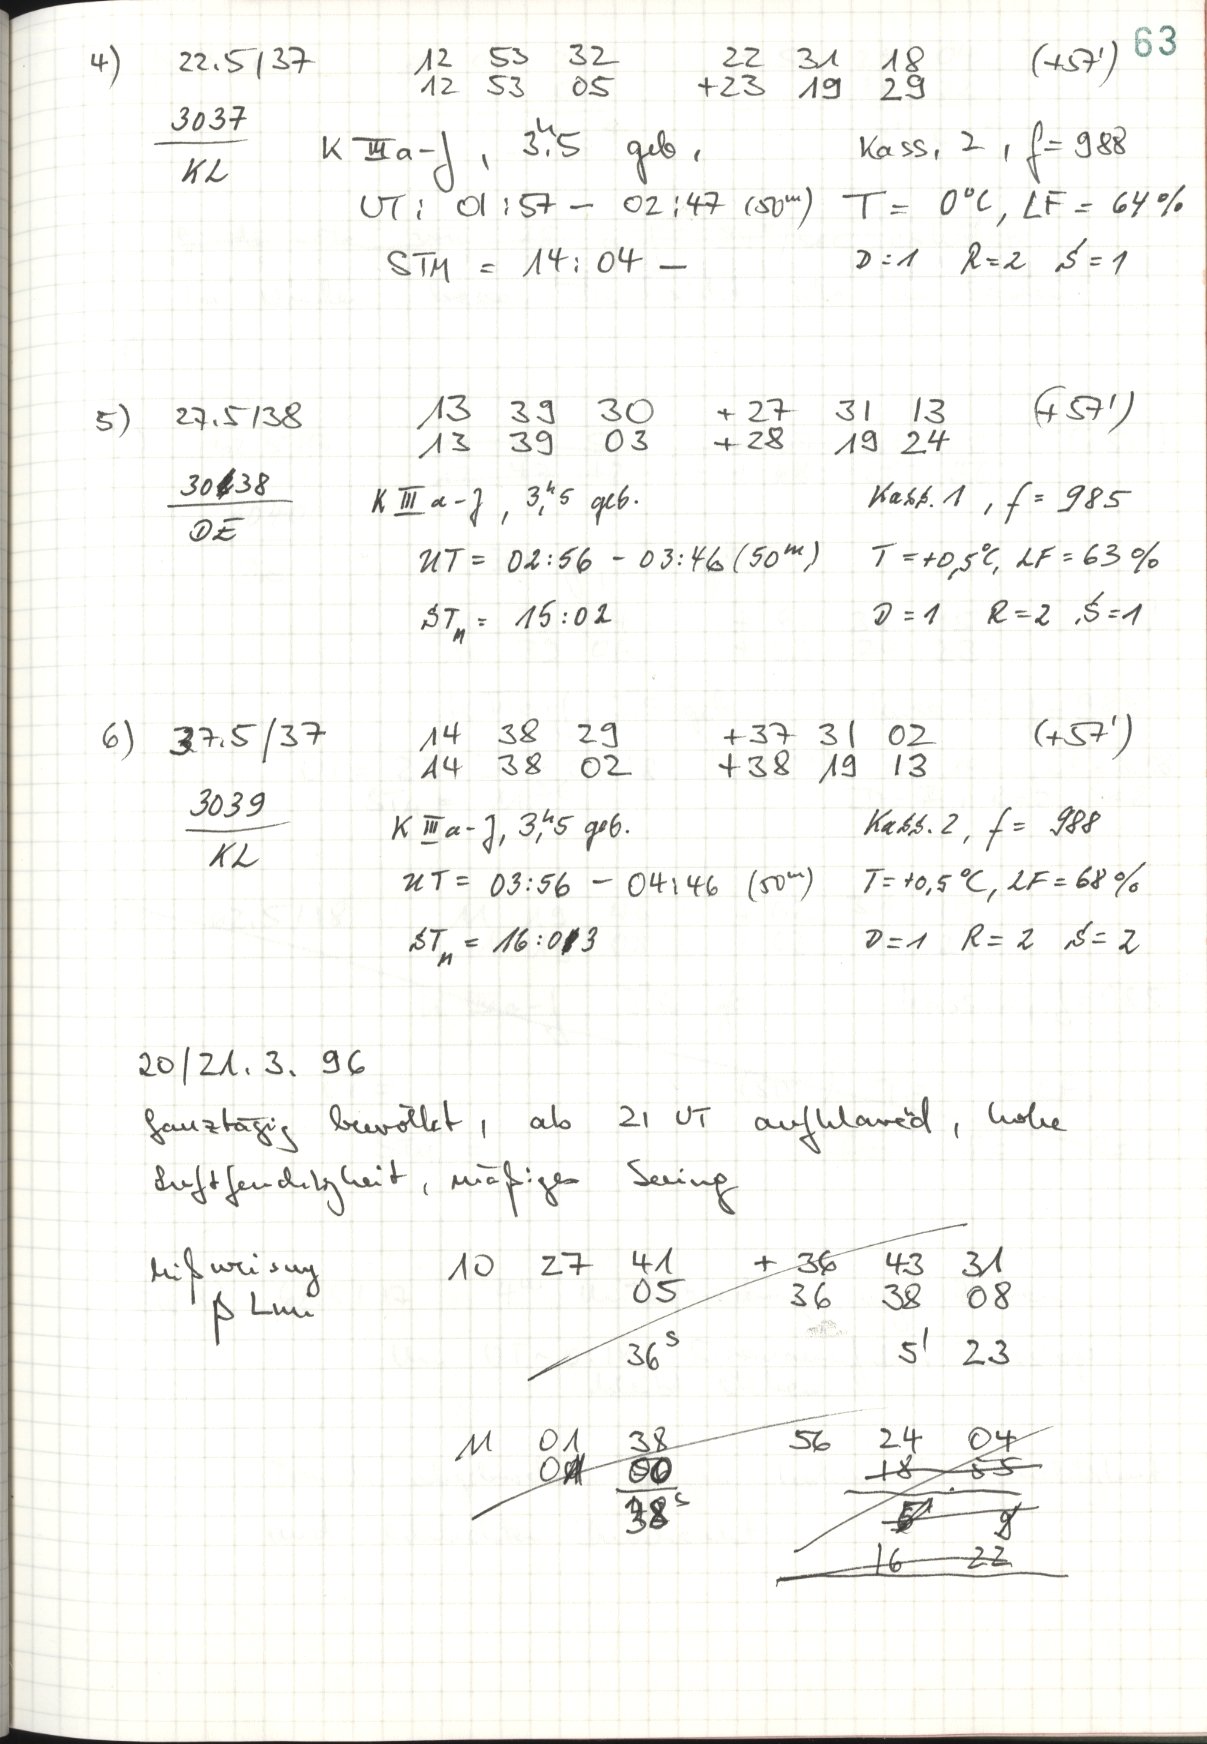 63
4) 22.5/37 12 53 32 22 31 18 (+57')
12 53 05 +23 19 29
3037
KL
K III a-J, 3,ʰ5 geb, Kass. 2, f = 988
UT: 01:57 - 02:47 (50ᵐ) T = 0°C, LF = 64%
STM = 14:04 - D=1 R=2 S=1
5) 27.5/38 13 39 30 +27 31 13 (+57')
13 39 03 +28 19 24
3038
DE
K III a-J, 3,ʰ5 geb. Kass. 1, f = 985
UT = 02:56 - 03:46 (50ᵐ) T = +0,5°C, LF = 63%
STM = 15:02 D=1 R=2 S=1
6) 37.5/37 14 38 29 +37 31 02 (+57')
14 38 02 +38 19 13
3039
KL
K III a-J, 3,ʰ5 geb. Kass. 2, f = 988
UT = 03:56 - 04:46 (50ᵐ) T = +0,5°C, LF = 68%
STM = 16:03 D=1 R=2 S=2
20/21. 3. 96
ganztägig bewölkt, ab 21 UT aufklared, hohe
Luftfeuchtigkeit, mäßiges Seeing
Mißweisung 10 27 41 + 36 43 31
β Lmi 05 36 38 08
36ˢ 5' 23
11 01 38 56 24 04
00 18 55
38ˢ 9
16 22